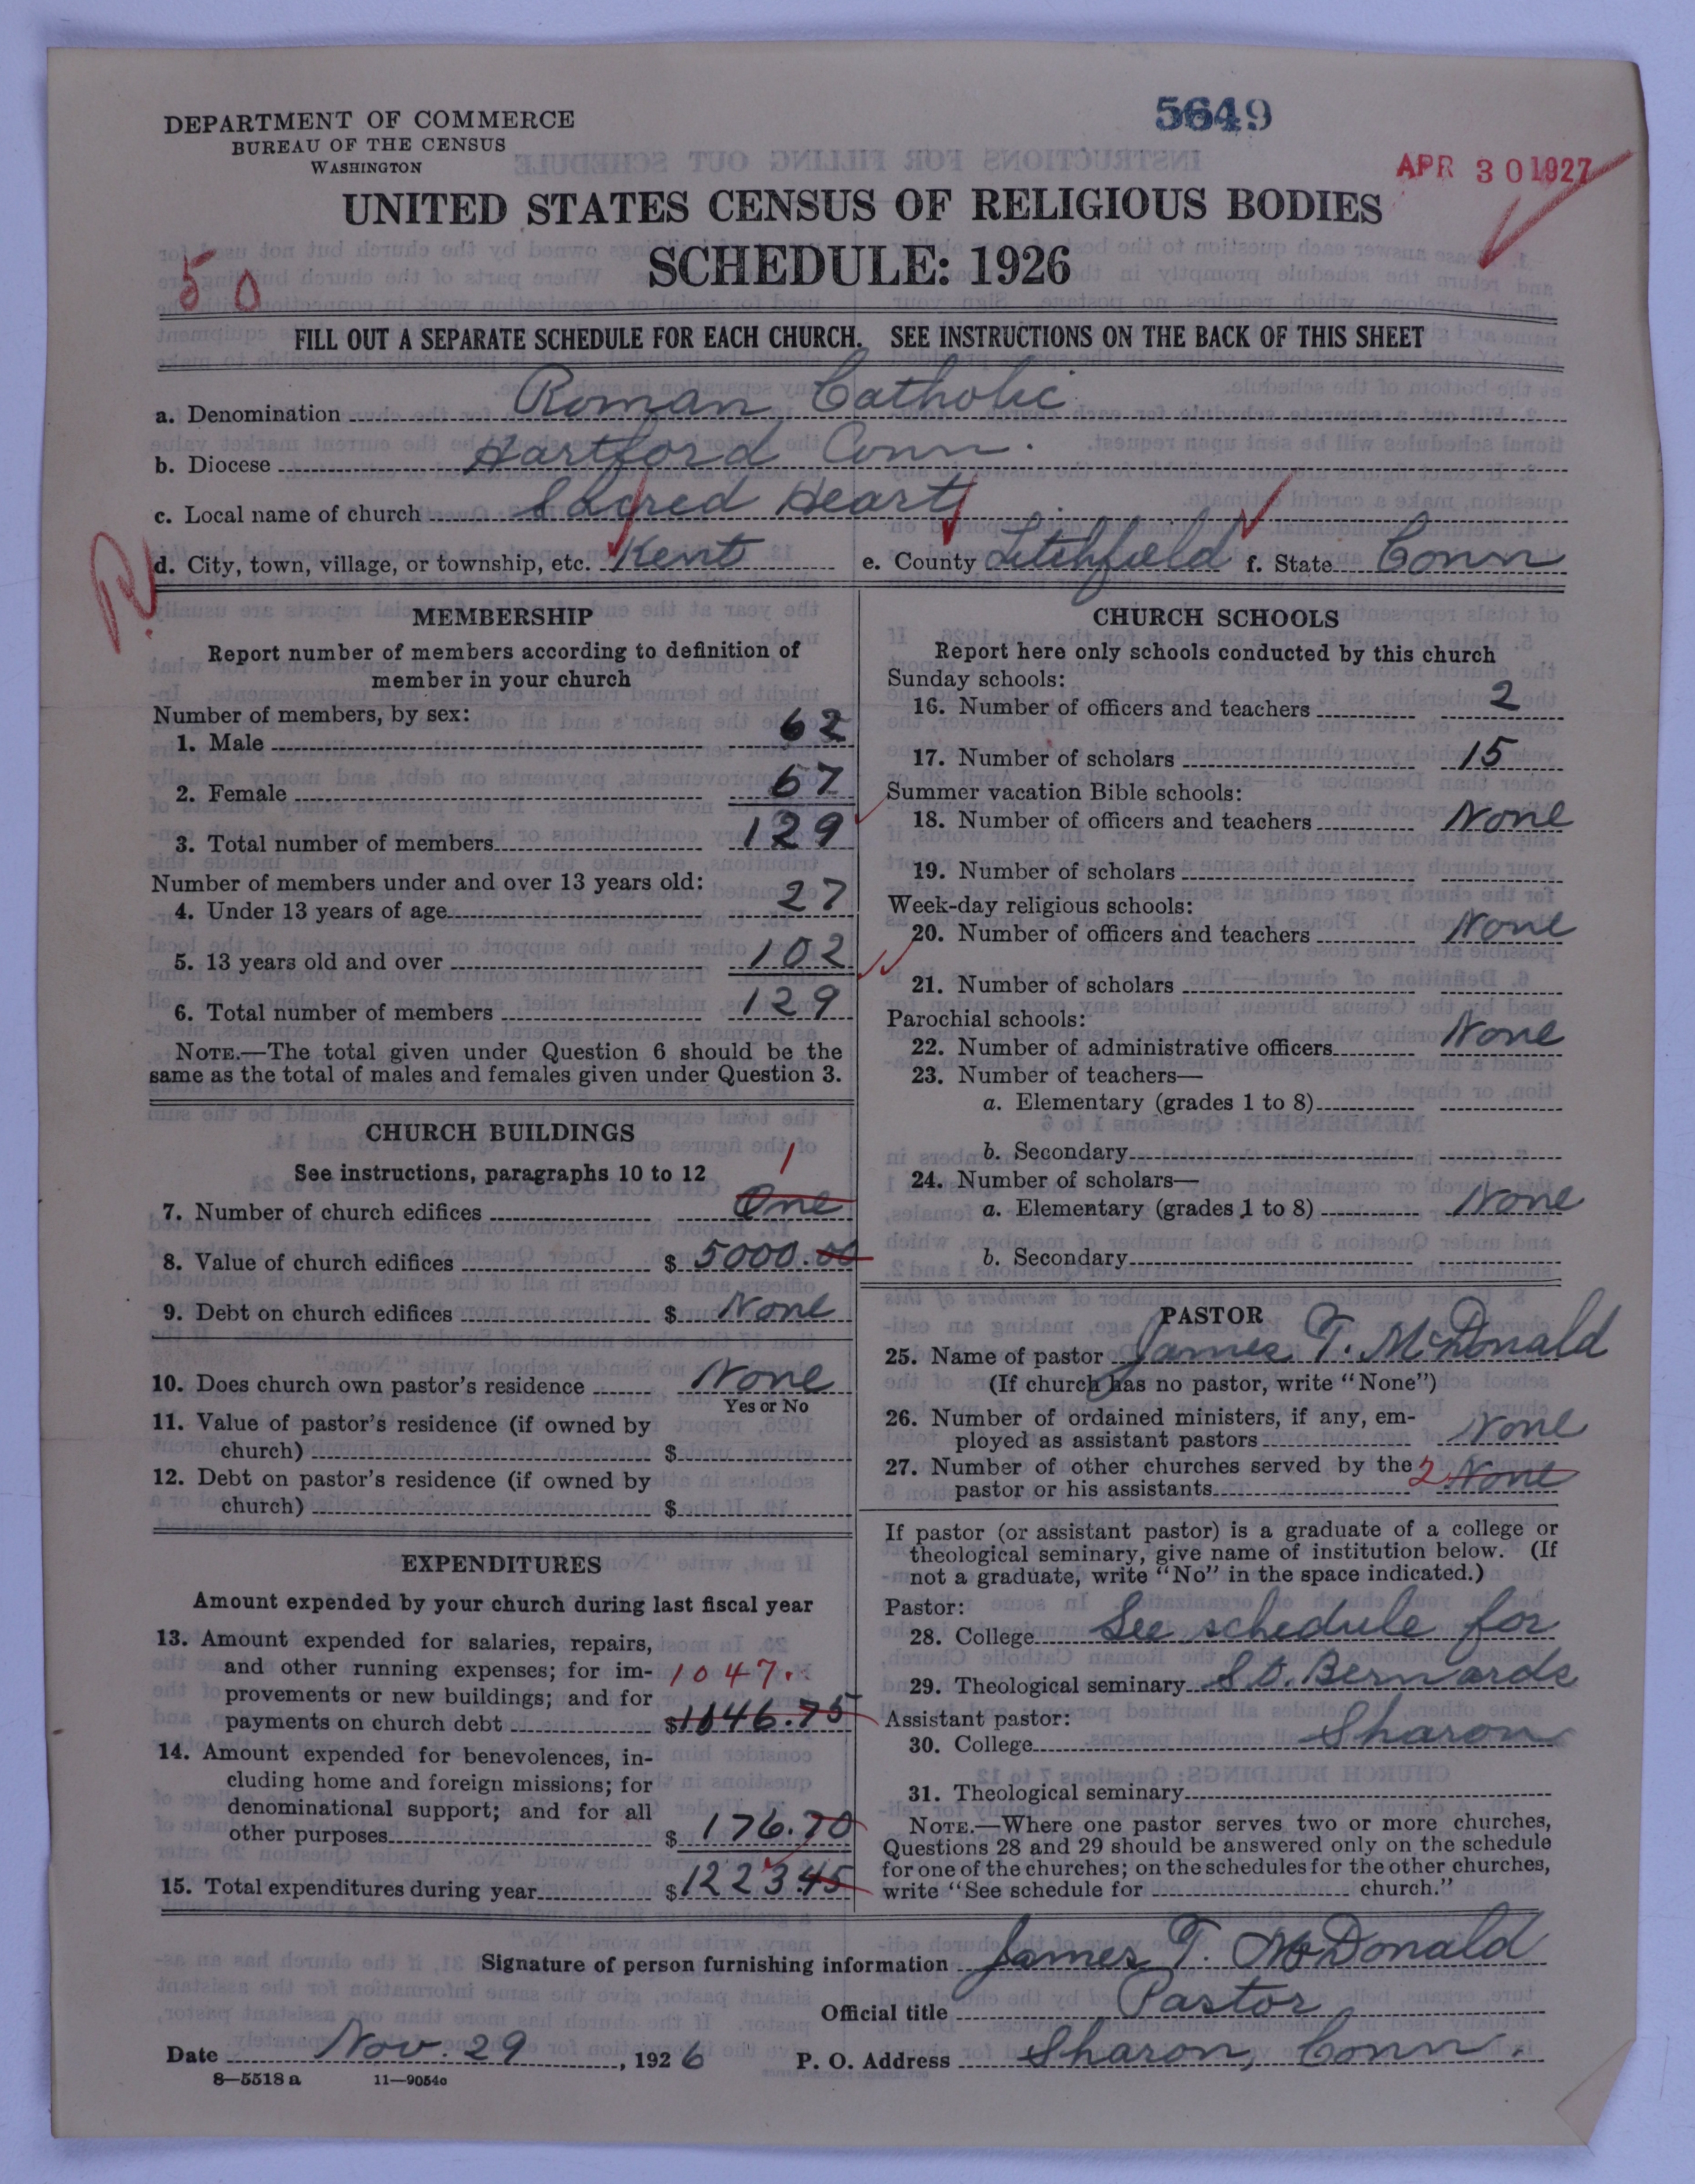 DEPARTMENT OF COMMERCE
BUREAU OF THE CENSUS
WASHINGTON
5649
APR 30 1927
UNITED STATES CENSUS OF RELIGIOUS BODIES
SCHEDULE: 1926
50
FILL OUT A SEPARATE SCHEDULE FOR EACH CHURCH. SEE INSTRUCTIONS ON THE BACK OF THIS SHEET
a. Denomination Roman Catholic
b. Diocese Hartford Conn.
c. Local name of church Sacred Heart
d. City, town, village, or township, etc. Kent e. County Litchfield f. State Conn
R
MEMBERSHIP
Report number of members according to definition of
member in your church
Number of members, by sex:
1. Male 62
2. Female 67
3. Total number of members 129
Number of members under and over 13 years old:
4. Under 13 years of age 27
5. 13 years old and over 102
6. Total number of members 129
NOTE.—The total given under Question 6 should be the
same as the total of males and females given under Question 3.
CHURCH BUILDINGS
See instructions, paragraphs 10 to 12
1
7. Number of church edifices One
8. Value of church edifices $ 5000.00
9. Debt on church edifices $ None
10. Does church own pastor's residence None
Yes or No
11. Value of pastor's residence (if owned by
church) $
12. Debt on pastor's residence (if owned by
church) $
EXPENDITURES
Amount expended by your church during last fiscal year
13. Amount expended for salaries, repairs,
and other running expenses; for im- 1047.
provements or new buildings; and for
payments on church debt $1046.75
14. Amount expended for benevolences, in-
cluding home and foreign missions; for
denominational support; and for all
other purposes $ 176.70
15. Total expenditures during year $ 1223 45
CHURCH SCHOOLS
Report here only schools conducted by this church
Sunday schools:
16. Number of officers and teachers 2
17. Number of scholars 15
Summer vacation Bible schools:
18. Number of officers and teachers None
19. Number of scholars
Week-day religious schools:
20. Number of officers and teachers None
21. Number of scholars
Parochial schools:
22. Number of administrative officers None
23. Number of teachers—
a. Elementary (grades 1 to 8)
b. Secondary
24. Number of scholars—
a. Elementary (grades 1 to 8) None
b. Secondary
PASTOR
25. Name of pastor James T. McDonald
(If church has no pastor, write "None")
26. Number of ordained ministers, if any, em-
ployed as assistant pastors None
27. Number of other churches served by the 2
pastor or his assistants None
If pastor (or assistant pastor) is a graduate of a college or
theological seminary, give name of institution below. (If
not a graduate, write "No" in the space indicated.)
Pastor:
28. College See schedule for
29. Theological seminary St. Bernards
Assistant pastor:
30. College Sharon
31. Theological seminary
NOTE.—Where one pastor serves two or more churches,
Questions 28 and 29 should be answered only on the schedule
for one of the churches; on the schedules for the other churches,
write "See schedule for church."
Signature of person furnishing information James T. McDonald
Official title Pastor
Date Nov. 29, 1926 P. O. Address Sharon, Conn.
8—5518 a 11—9054c